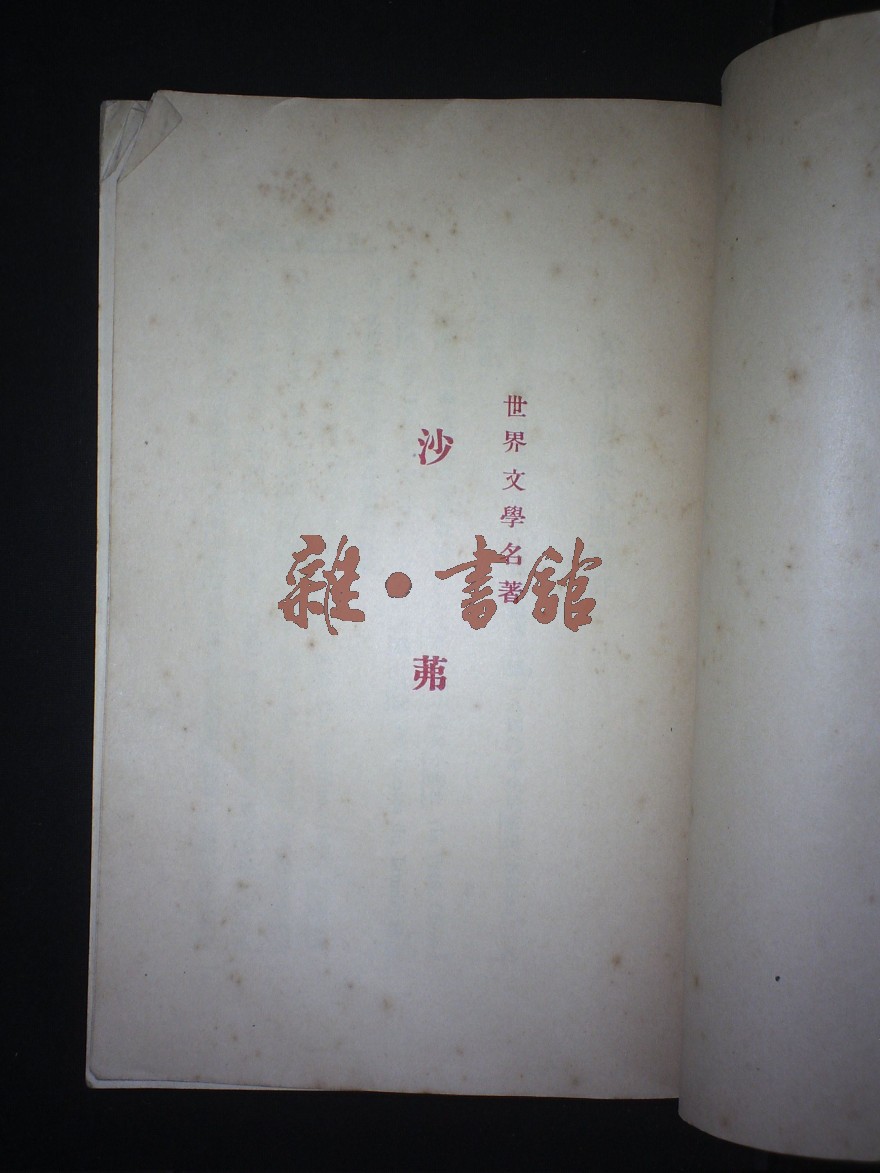 世界文學名著
沙茀
雜·書館